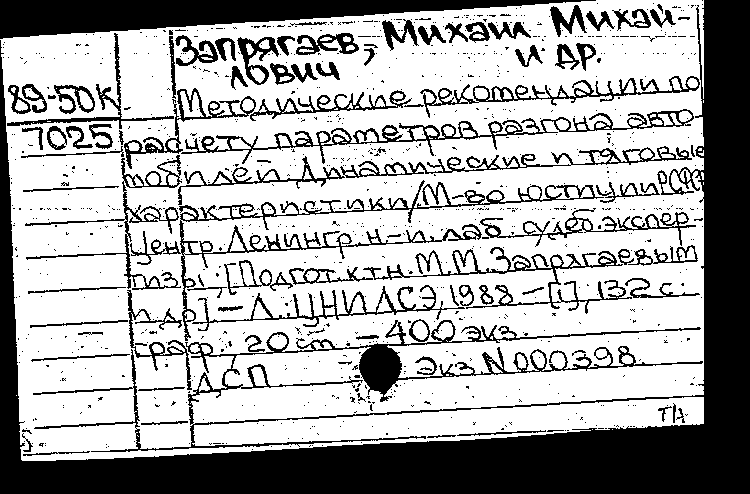 Запрягаев, Михаил Михай-
лович и др.
89-50К
7025
Методические рекомендации по
расчету параметров разгона авто-
мобилей. Динамические и тяговые
характеристики/М-во юстиции РСФСР
Центр. Ленингр. н-и. лаб. судеб. экспер-
тизы; [Подгот. к.т.н. М.М. Запрягаевым
и др] - Л.: ЦНИЛСЭ, 1988 - [1], 132 с.:
граф.; 20 см. - 400 экз.
ДСП Экз. N000398.